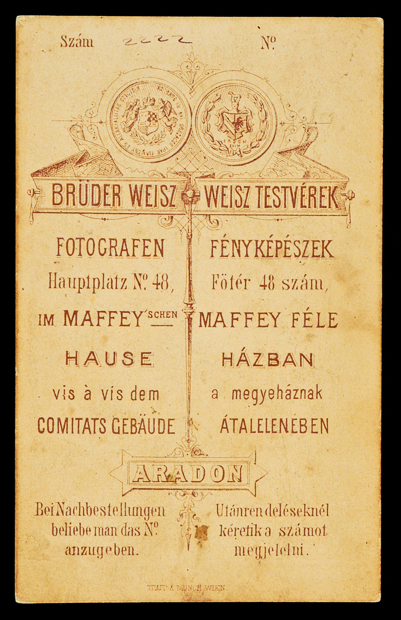 Szám 2222 Nº
BRÜDER WEISZ WEISZ TESTVÉREK
FOTOGRAFEN
Hauptplatz Nº 48,
IM MAFFEY'SCHEN
HAUSE
vis à vis dem
COMITATS GEBÄUDE
FÉNYKÉPÉSZEK
Fötér 48 szám,
MAFFEY FÉLE
HÁZBAN
a megyeháznak
ÁTALELENÉBEN
ARADON
Bei Nachbestellungen
beliebe man das Nº
anzugeben.
Utánrendeléseknél
kéretik a számot
megjelelni.
WIEN